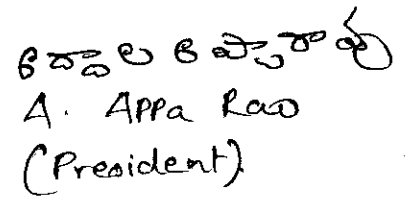 అద్దాల అప్పారావు
A. Appa Rao
(President)